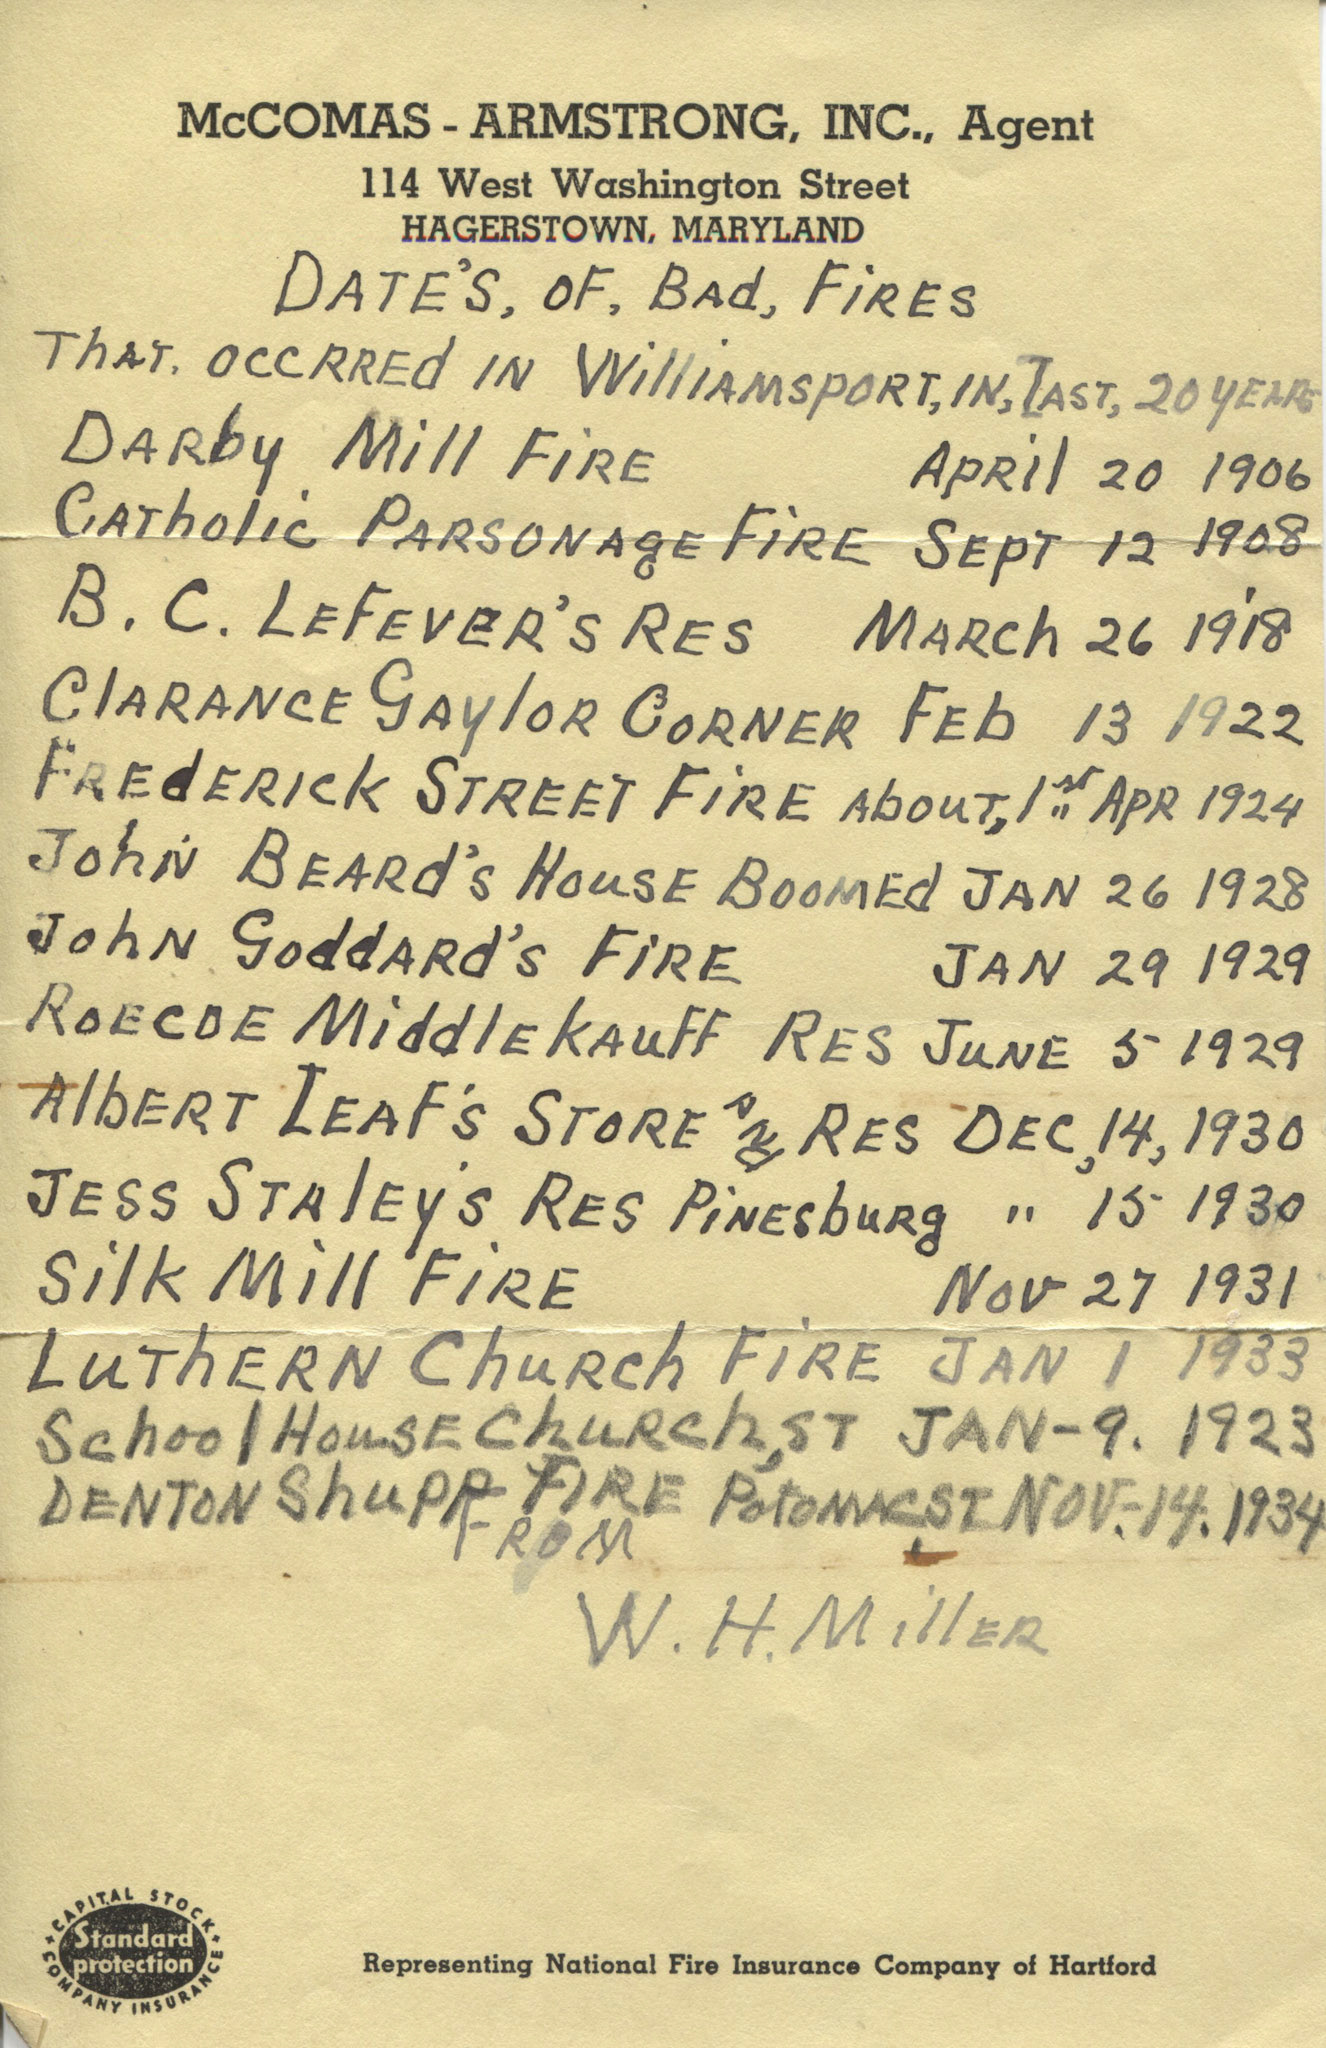 McCOMAS - ARMSTRONG, INC., Agent
114 West Washington Street
HAGERSTOWN, MARYLAND
DATE'S, OF, BAd, FiRES
THAT. OCCRRED IN WilliAMSPORT, IN, LAST, 20 YEARS
DARby Mill FiRE APRil 20 1906
CATholic PARSONAgE FiRE SEPT 12 1908
B. C. LEFEVER'S RES MARCh 26 1918
ClARANCE GAylOR CORNER FEb 13 1922
FREdERICk STREET FiRE AbOUT, 1st APR 1924
John BEARd's HousE BOOMEd JAN 26 1928
John GoddARd's FiRE JAN 29 1929
ROECOE MiddlEkAuFF RES JuNE 5 1929
AlbERT LEAF's STORE and RES DEC, 14, 1930
JESS STAlEy's RES PiNESburg " 15 1930
Silk Mill FiRE Nov 27 1931
LuThERN ChuRch FiRE JAN 1 1933
School HousE ChuRch, ST JAN-9. 1923
DENTON ShuPP FIRE PotomAc, ST NOV-14. 1934
FROM
W. H. MillER
CAPITAL STOCK
Standard
protection
COMPANY INSURANCE
Representing National Fire Insurance Company of Hartford